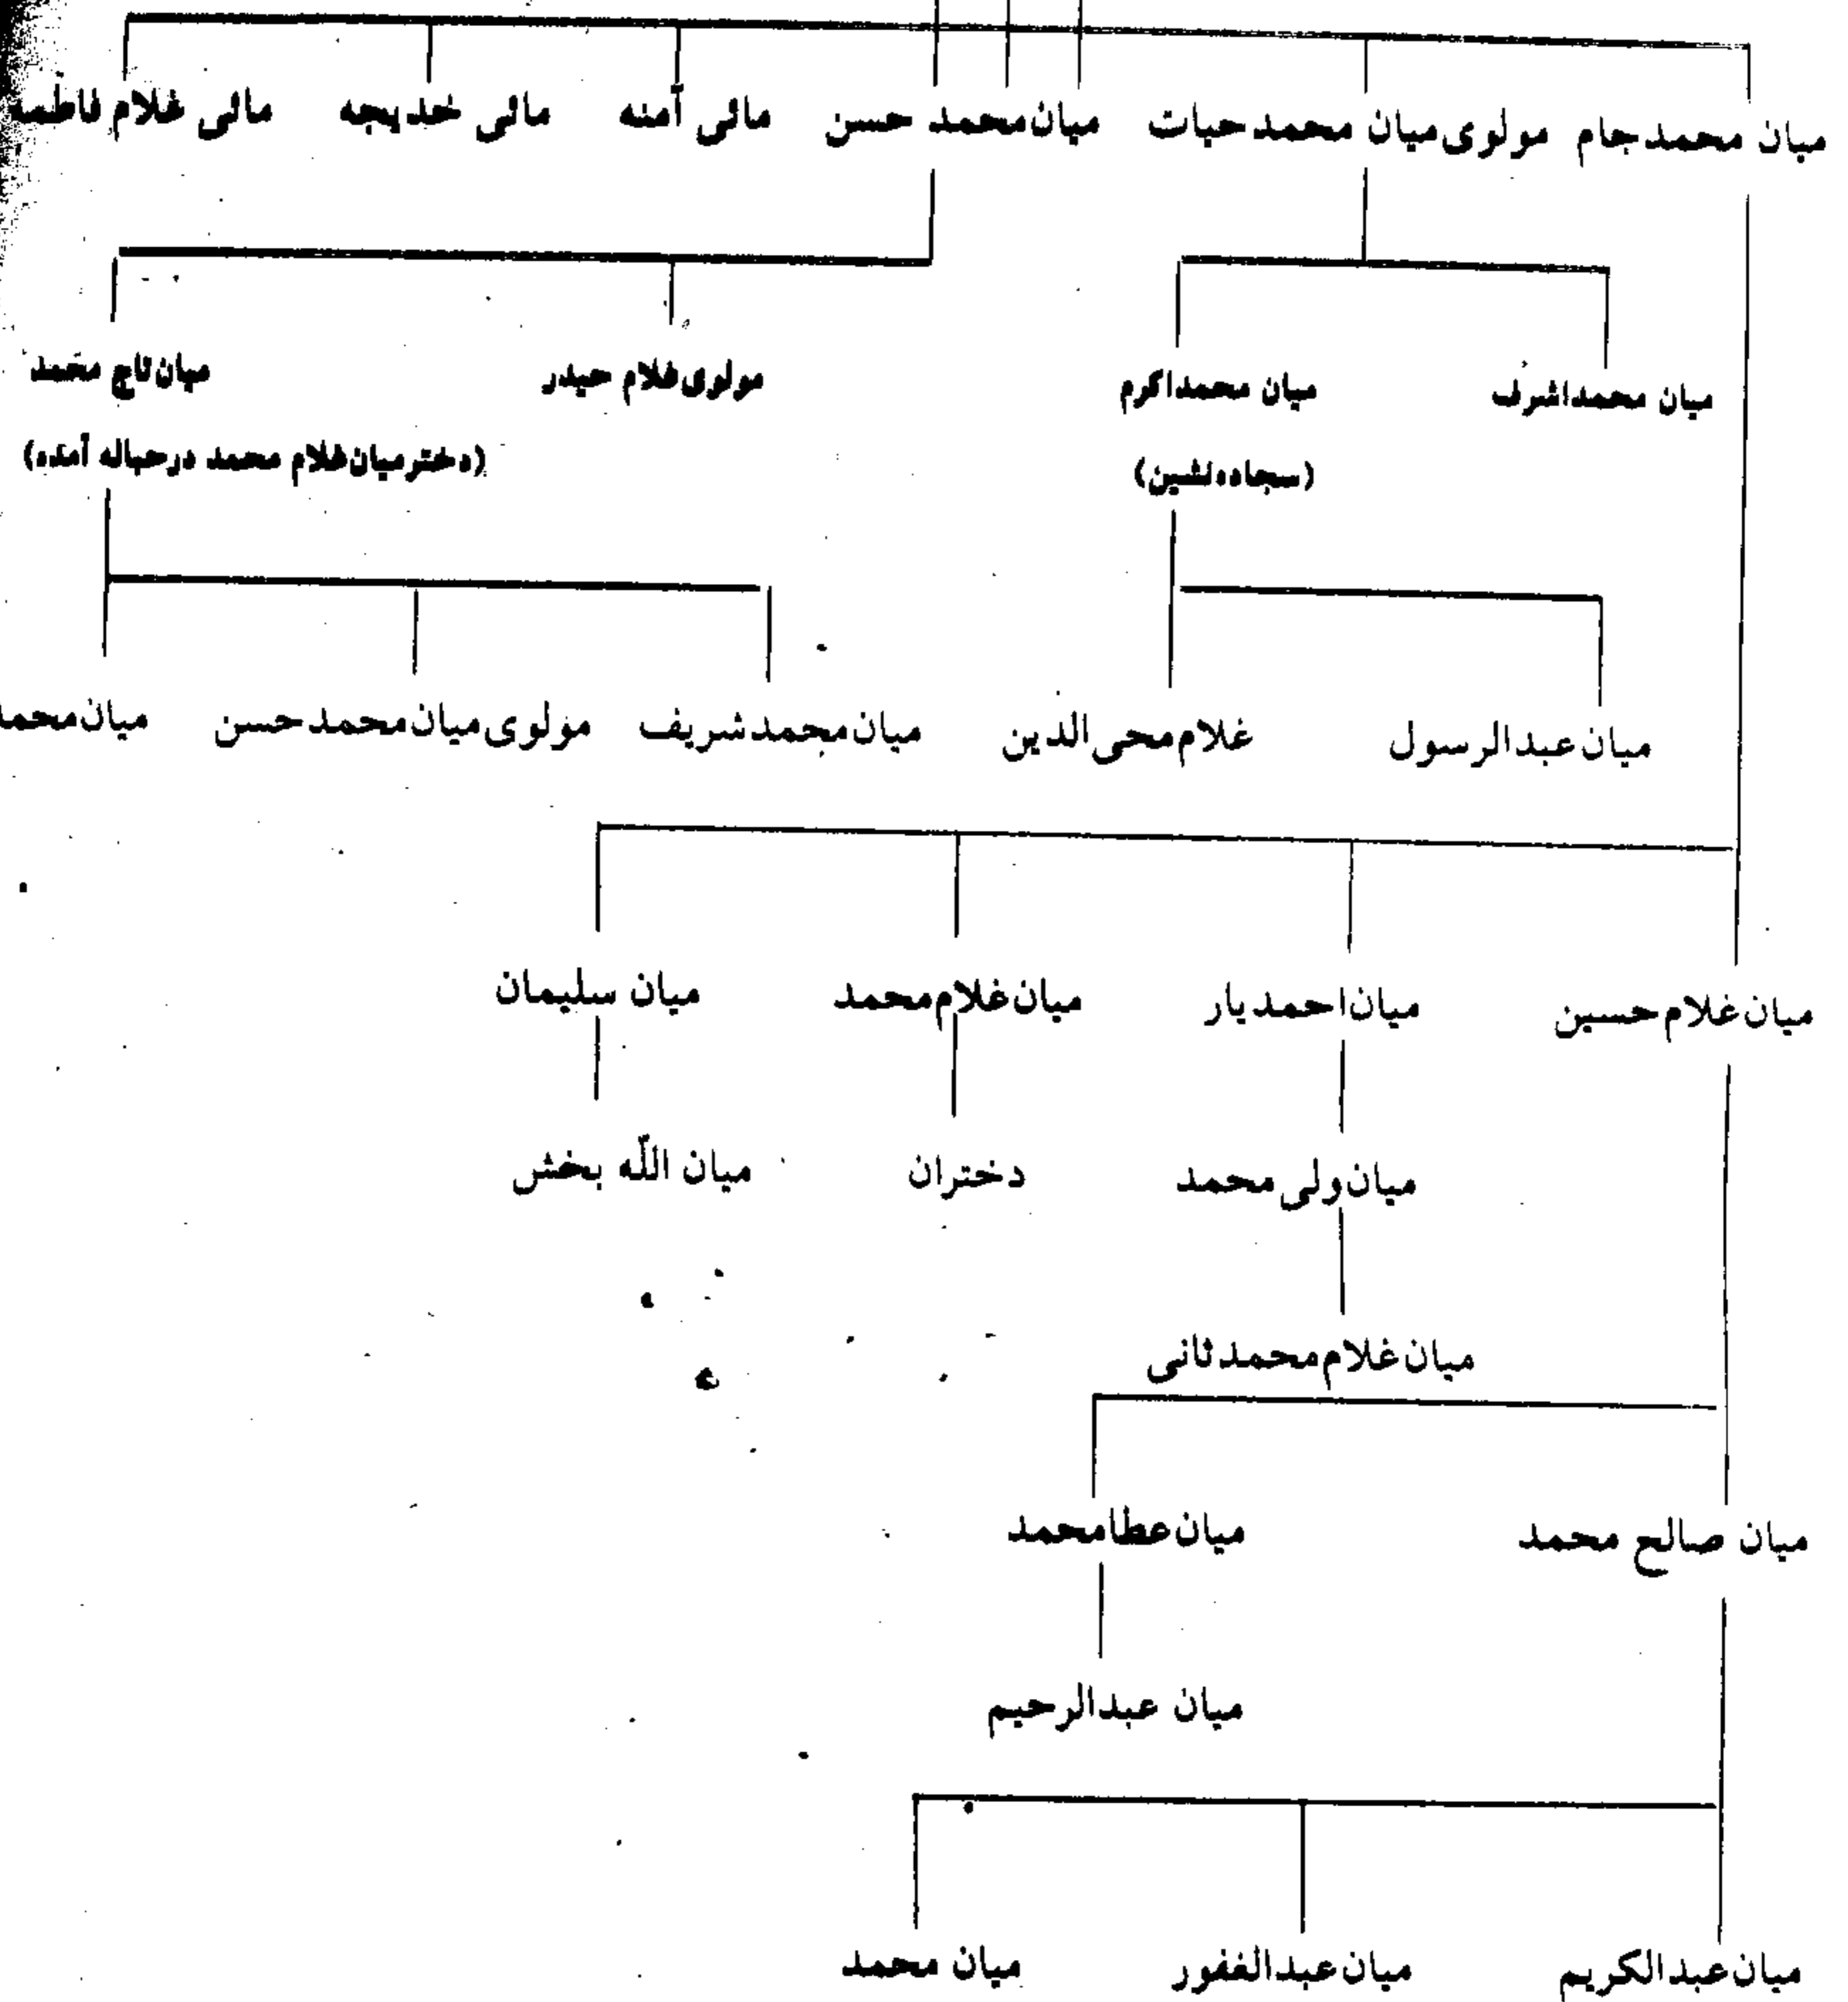 میان محمد جام مولوی میان محمد حیات میان محمد حسن مائی آمنه مائی خدیجه مائی غلام فاطمه
میان محمد اشرف میان محمد اکرم مولوی غلام حیدر میان تاج محمد
(سجاده نشین) (دختر میان غلام محمد در حباله آمده)
میان عبدالرسول غلام محی الدین میان محمد شریف مولوی میان محمد حسن میان محمد
میان غلام حسین میان احمد یار میان غلام محمد میان سلیمان
میان ولی محمد دختران میان اللّه بخش
میان غلام محمد ثانی
میان صالح محمد میان عطا محمد
میان عبدالرحیم
میان عبدالکریم میان عبدالغفور میان محمد